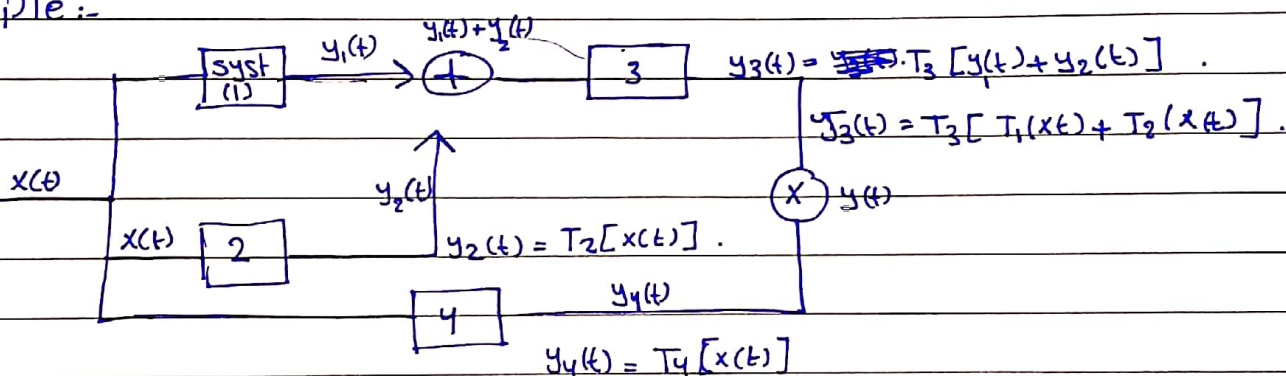 ple :-
y₁(t) + y₂(t)
syst (1)
y₁(t)
+
3
y₃(t) = T₃ [y₁(t) + y₂(t)] .
y₃(t) = T₃ [ T₁(xt) + T₂(x(t) ] .
x(t)
y₂(t)
x y(t)
x(t)
2
y₂(t) = T₂[x(t)] .
4
y₄(t)
y₄(t) = T₄ [x(t)]